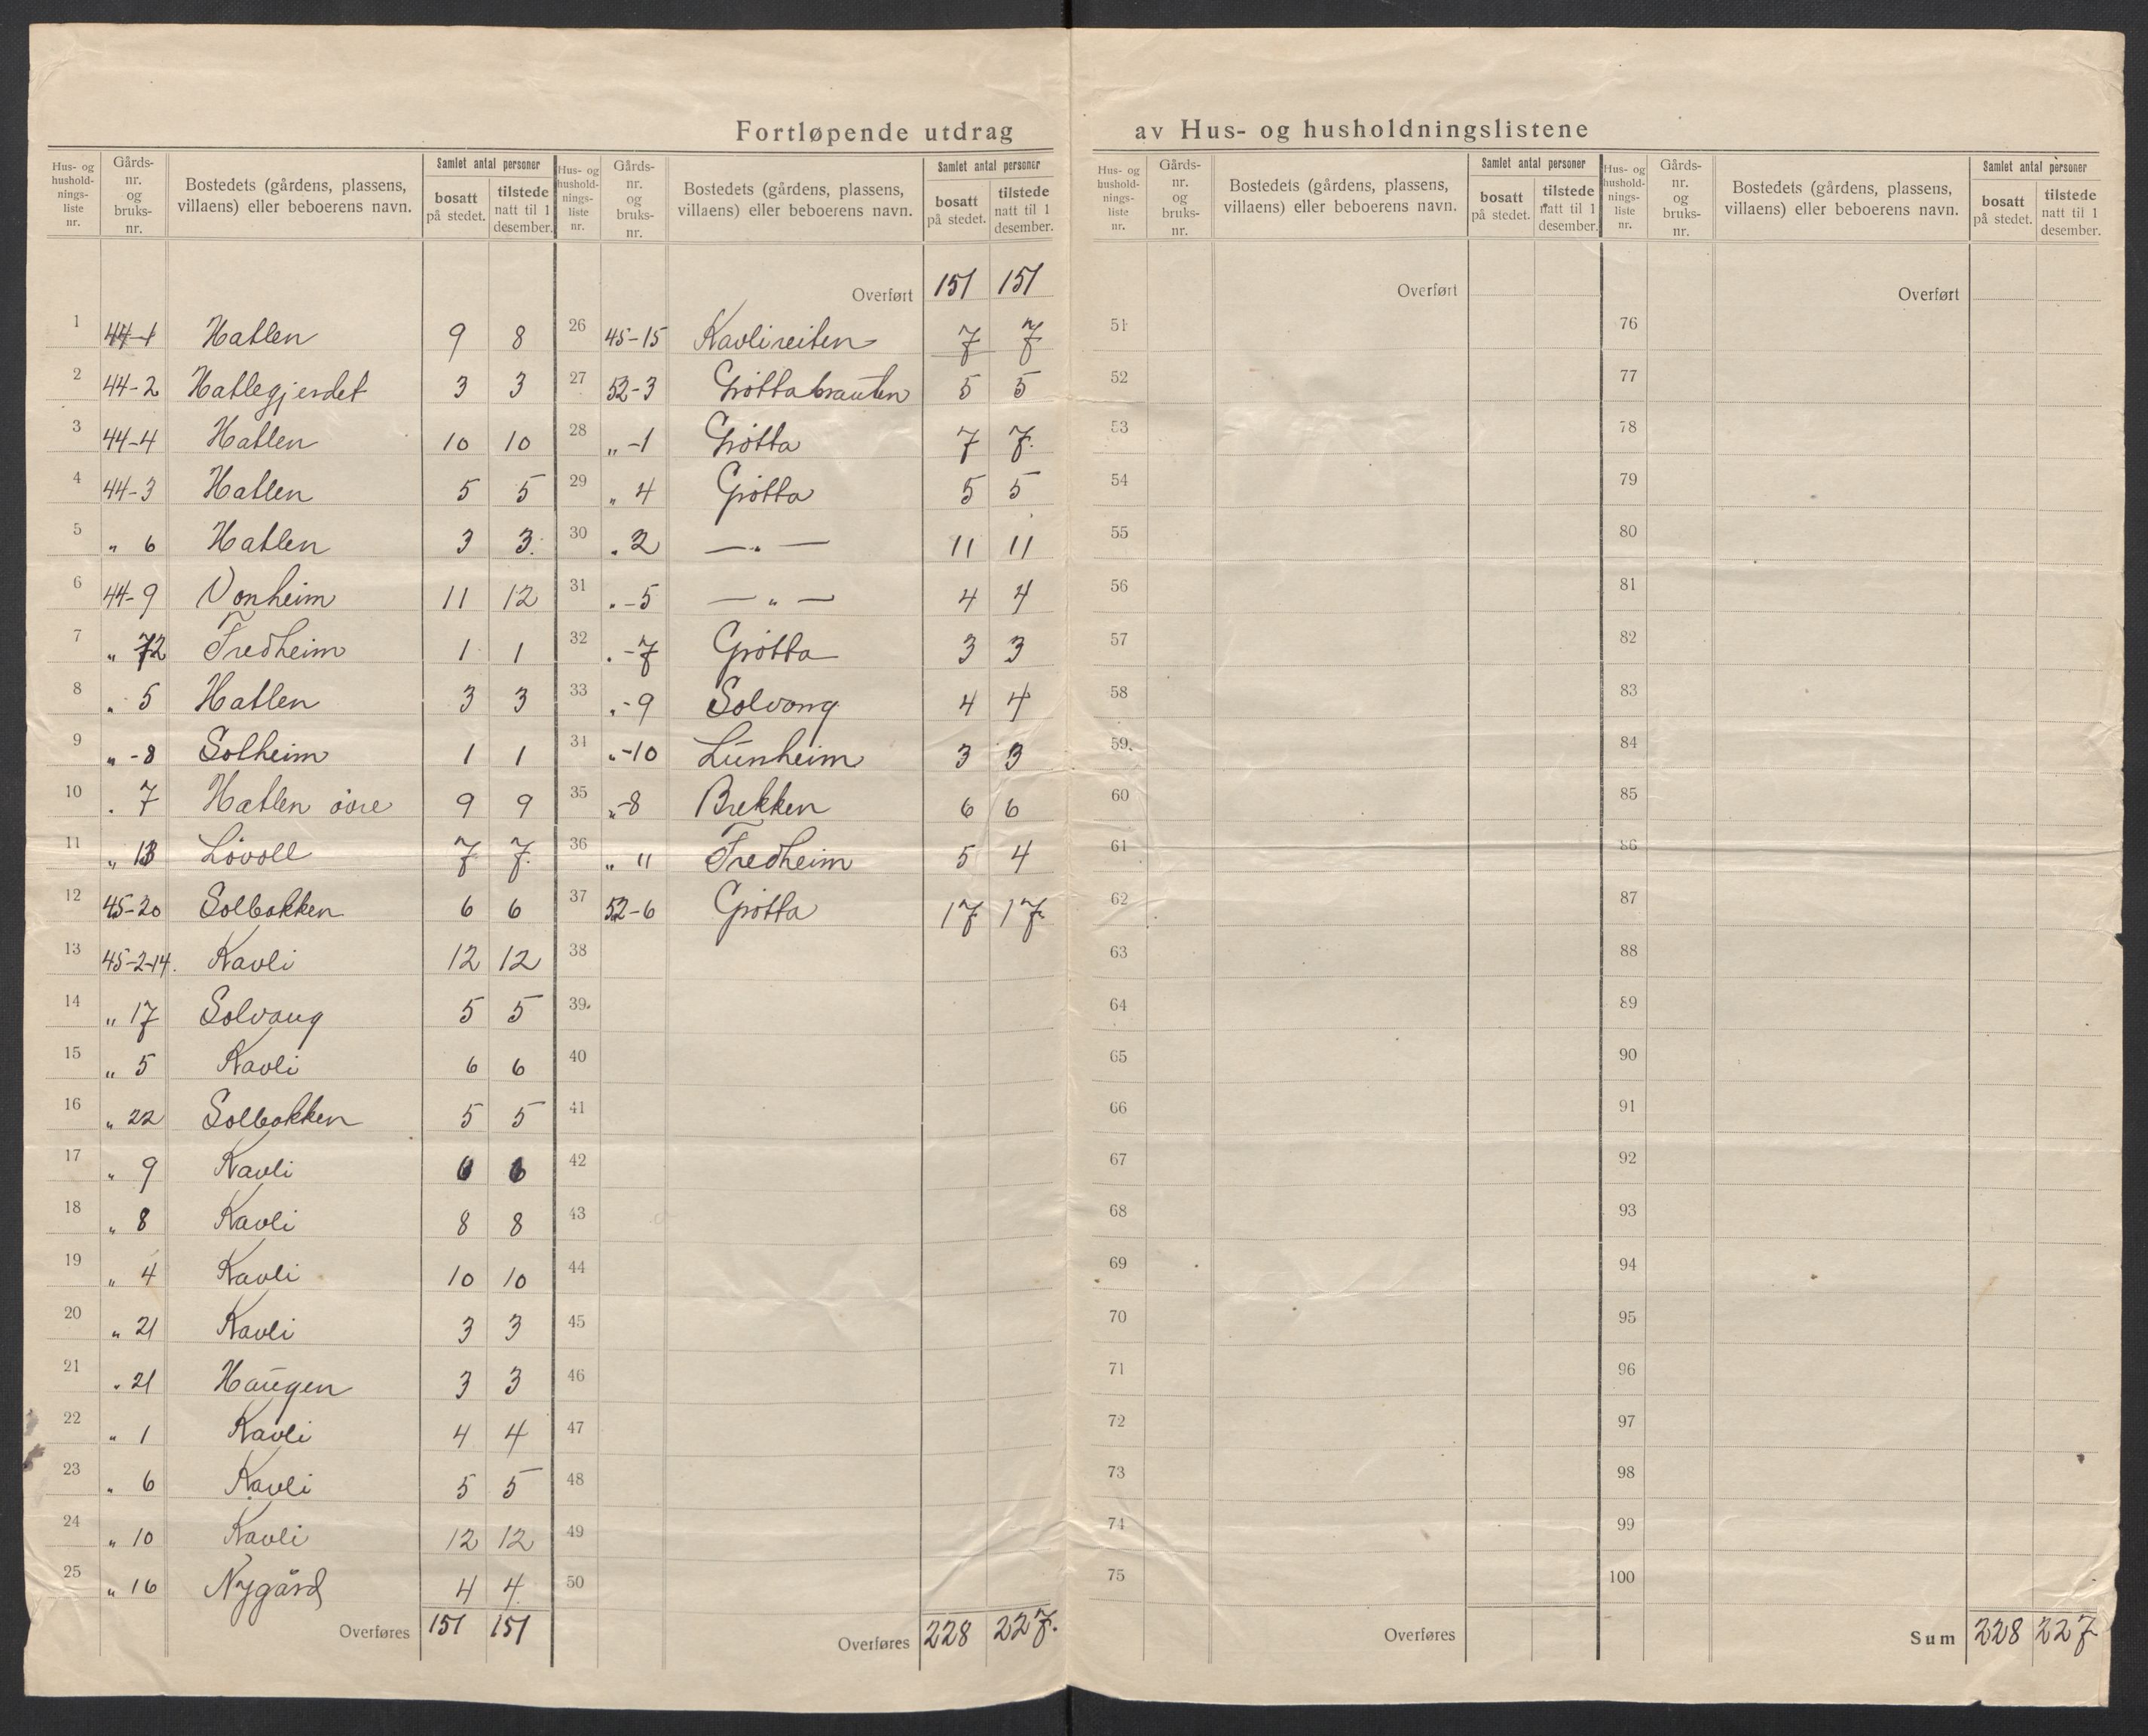 Fortløpende utdrag av Hus- og husholdningslistene
Hus- og hushold-nings-liste nr. Gårds-nr. og bruks-nr. Bostedets (gårdens, plassens, villaens) eller beboerens navn. Samlet antal personer bosatt på stedet. tilstede natt til 1 desember.
1 44-1 Hatlen 9 8
2 44-2 Hatlegjerdet 3 3
3 44-4 Hatlen 10 10
4 44-3 Hatlen 5 5
5 „ 6 Hatlen 3 3.
6 44-9 Vonheim 11 12
7 „ 72 Fredheim 1 1
8 „ 5 Hatlen 3 3
9 „ -8 Solheim 1 1
10 „ 7 Hatlen øvre 9 9
11 „ 13 Løvoll 7 7.
12 45-20 Solbakken 6 6
13 45-2-14. Kavli 12 12
14 „ 17 Solvang 5 5
15 „ 5 Kavli 6 6
16 „ 22 Solbakken 5 5
17 „ 9 Kavli 6 6
18 „ 8 Kavli 8 8
19 „ 4 Kavli 10 10
20 „ 21 Kavli 3 3
21 „ 21 Haugen 3 3
22 „ 1 Kavli 4 4
23 „ 6 Kavli 5 5
24 „ 10 Kavli 12 12
25 „ 16 Nygård 4 4.
Overføres 151 151
Hus- og hushold-nings-liste nr. Gårds-nr. og bruks-nr. Bostedets (gårdens, plassens, villaens) eller beboerens navn. Samlet antal personer bosatt på stedet. tilstede natt til 1 desember.
Overført 151 151
26 45-15 Kavlireiten 7 7
27 52-3 Grøttabrauten 5 5
28 „ -1 Grøtta 7 7.
29 „ 4 Grøtta 5 5
30 „ 2 — „ — 11 11
31 „ -5 — „ — 4 4
32 „ -7 Grøtta 3 3
33 „ -9 Solvang 4 4
34 „ -10 Lunheim 3 3
35 „ -8 Brekken 6 6
36 „ 11 Fredheim 5 4
37 52-6 Grøtta 17 17.
38
39
40
41
42
43
44
45
46
47
48
49
50
Overføres 228 227.
Hus- og hushold-nings-liste nr. Gårds-nr. og bruks-nr. Bostedets (gårdens, plassens, villaens) eller beboerens navn. Samlet antal personer bosatt på stedet. tilstede natt til 1 desember.
Overført
51
52
53
54
55
56
57
58
59
60
61
62
63
64
65
66
67
68
69
70
71
72
73
74
75
Overføres
Hus- og hushold-nings-liste nr. Gårds-nr. og bruks-nr. Bostedets (gårdens, plassens, villaens) eller beboerens navn. Samlet antal personer bosatt på stedet. tilstede natt til 1 desember.
Overført
76
77
78
79
80
81
82
83
84
85
86
87
88
89
90
91
92
93
94
95
96
97
98
99
100
Sum 228 227